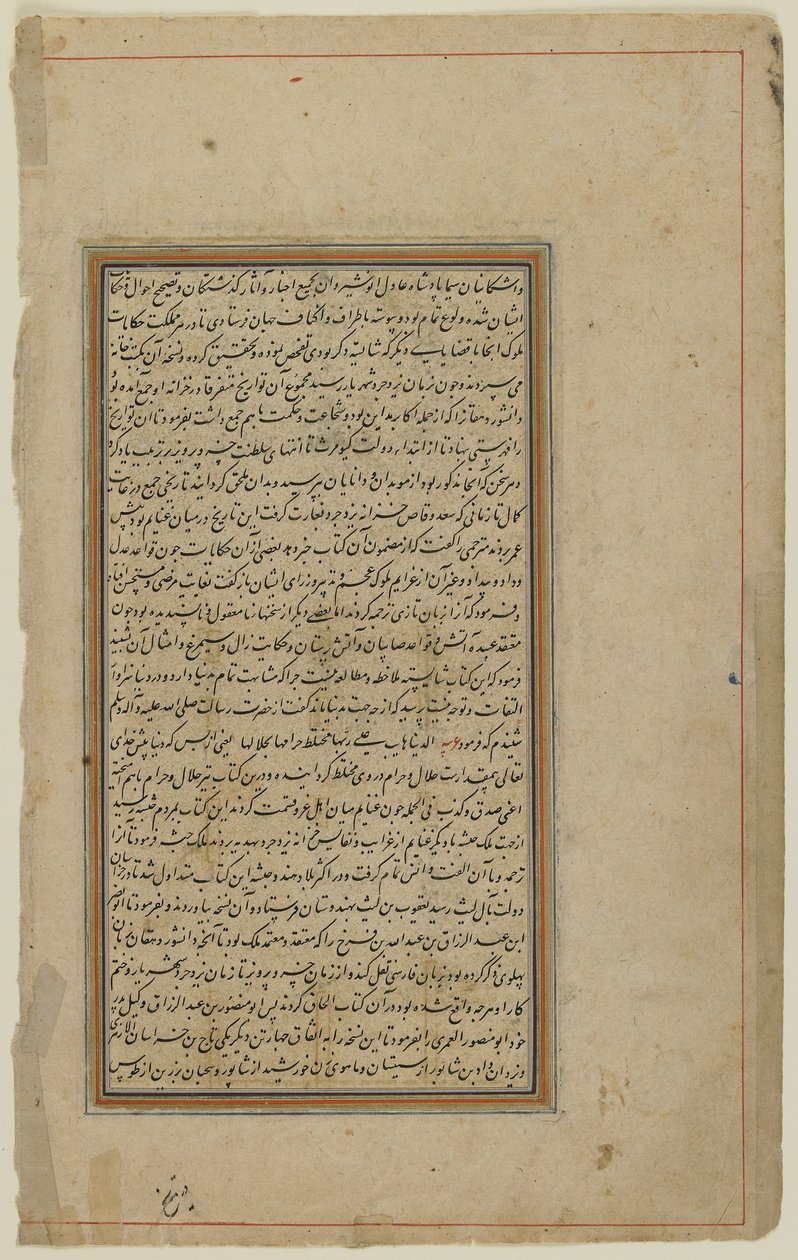 واشکانیان سیما پادشاه عادل انوشیروان بجمیع اخبار و آثار گذشتگان و تصحیح احوال و حکایات
ایشان شده ولوع تمام بود و پیوسته باطراف و اکناف جهان فرستادی تا در هر مملکت حکایات
ملوک انجا با قضایایی دیگر که شایسته ذکر بودی تفحص نموده و تحقیق کرده و نسخه آن بکتبخانه
می سپردند و چون نزمان یزدجرد شهریار رسید مجموع آن تواریخ متفرقا در خزانه او جمع آمده بود
دانشور دهقانرا که از جمله اکابر مداین بود و شجاعت و حکمت باهم جمع داشت بفرمود تا ان تواریخ
را فهرستی نهاد تا از ابتداء دولت کیومرث تا انتهای سلطنت خسرو پرویز بر ترتیب یاد کرد
و هر سخن که انجا مذکور نبود از موبدان و دانایان بپرسید و بدان ملحق گردانید تاریخی جمع در غایت
کمال تا زمانی که سعد وقاص خزانه یزدجرد بغارت گرفت این تاریخ در میان غنایم بود پیش
عمر بردند مترجمی را گفت که از مضمون آن کتاب خبر دهد بعضی از آن حکایات چون قواعد عدل
و داد و بیداد و غیر آن از عزایم ملوک عجم و تدبیر وزرای ایشان بازگفت بغایت مرضی و مستحسن افتاد
و فرمود که آنرا بزبان تازی ترجمه کردند اما بعضی دیگر از سخنها نامعقول و ناپسندیده بود چون
معتقد عبده آتش و قواعد صابیان و آتش پرستان و حکایت زال و سیمرغ و امثال آن بشنید
فرمود که این کتاب شایسته ملاحظه و مطالعه نیست چرا که مشابهت تمام بدنیا دارد و در دنیا سزاوار
التفات و توجه نیست پرسید که از چه جهت بدنیا ماند گفت از حضرت رسالت صلی الله علیه و آله وسلم
شنیدم که فرمود عربیه الدنیا هانت علی ربها مختلط حرامها بحلالها یعنی از بس که دنیا پیش خدای
تعالی بمقدارست حلال و حرام در وی مختلط گردانیده و درین کتاب نیز حلال و حرام باهم آمیخته
اعنی صدق و کذب فی الجمله چون غنایم میان اهل غزو قسمت کردند این کتاب بمردم حبشه رسید
از جهت ملک حبشه با دیگر غنایم از غرایب و نفایس خزانه یزدجرد بهدیه بردند ملک حبشه فرمود تا آنرا
ترجمه و با آن الفت و انس تمام گرفت و در اکثر بلاد هند و حبشه این کتاب متداول شد تا در خراسان
دولت بآل لیث رسید یعقوب بن لیث بهندوستان فرستاد و آن نسخه بیاوردند و بفرمود تا ابو نصر
ابن عبد الرزاق بن عبد الله بن فرخ را که معتقد و معتمد ملک بود تا آنچه دانشور دهقان بزبان
پهلوی ذکر کرده بود بزبان فارسی نقل کند و از زمان خسرو پرویز تا زمان یزدجرد شهریار و ختم
کار او هر چه واقع شده بود در آن کتاب الحاق کردند پس ابو منصور بن عبد الرزاق وکیل پدر
خود ابو منصور المعمری را بفرمود تا این نسخه را به اتفاق چهار تن دیگر یکی تاج بن خراسان
و یزدان داد بن شاپور از سیستان و ماهوی بن خورشید از شاپور و سحبان برزین از طوس